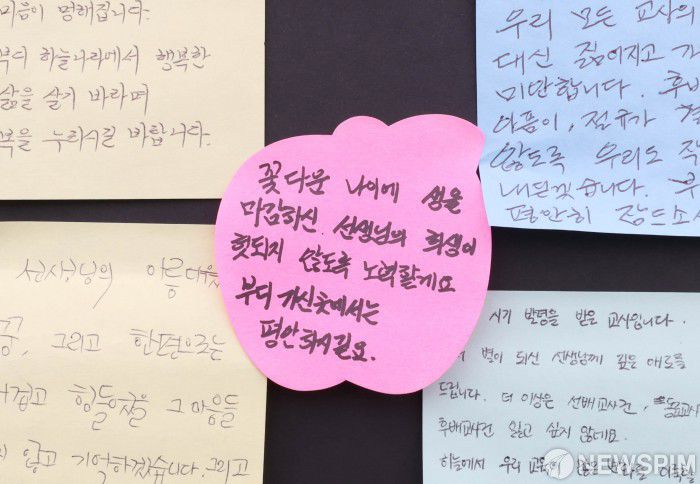 미음이 멍해집니다.
부디 하늘나라에서 행복한
삶을 살기 바라며
복을 누리시길 바랍니다.
우리 모든 교사의
대신 짊어지고 가
미안합니다. 후배
아픔이, 절규가
않도록 우리도
내딛겠습니다.
평안히 잠드소
꽃다운 나이에 생을
마감하신. 선생님의 희생이
헛되지 않도록 노력할게요
부디 가신곳에서는
평안하시길요.
선생님의 아름다웠
꿈, 그리고 한편으로는
겁고 힘들었을 그 마음들
않고 기억하겠습니다. 그리고
시기 발령을 받은 교사입니다.
별이 되신 선생님께 깊은 애도를
드립니다. 더 이상은 선배교사건, 동료교사
후배교사건 잃고 싶지 않네요.
하늘에서 우리 교육이
NEWSPIM